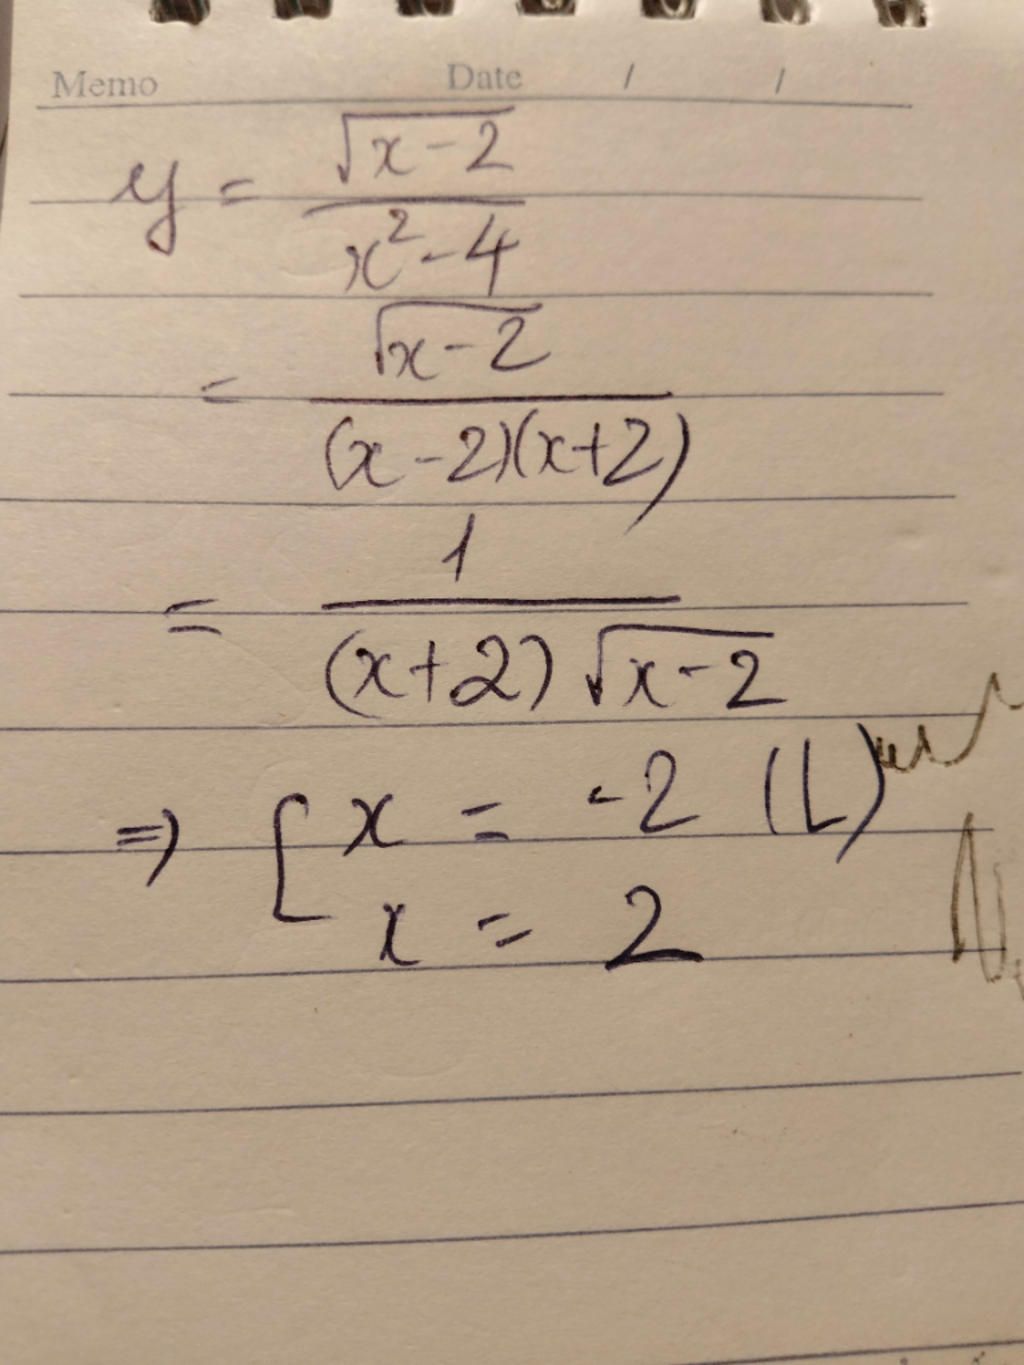 Memo Date / /
y = √(x-2) / (x²-4)
= √(x-2) / ((x-2)(x+2))
= 1 / ((x+2) √(x-2))
⇒ [ x = -2 (L)
x = 2